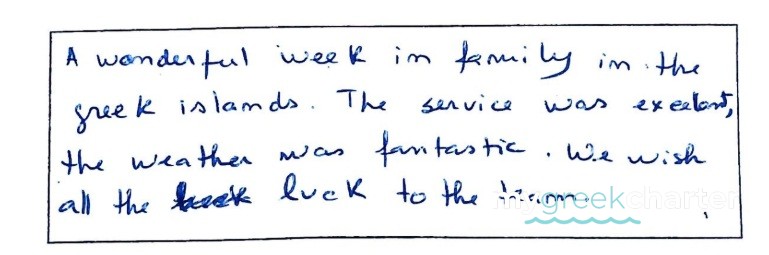 A wonderful week in family in the
greek islands. The service was excelant,
the weather was fantastic. We wish
all the luck to the team.
greekcharter